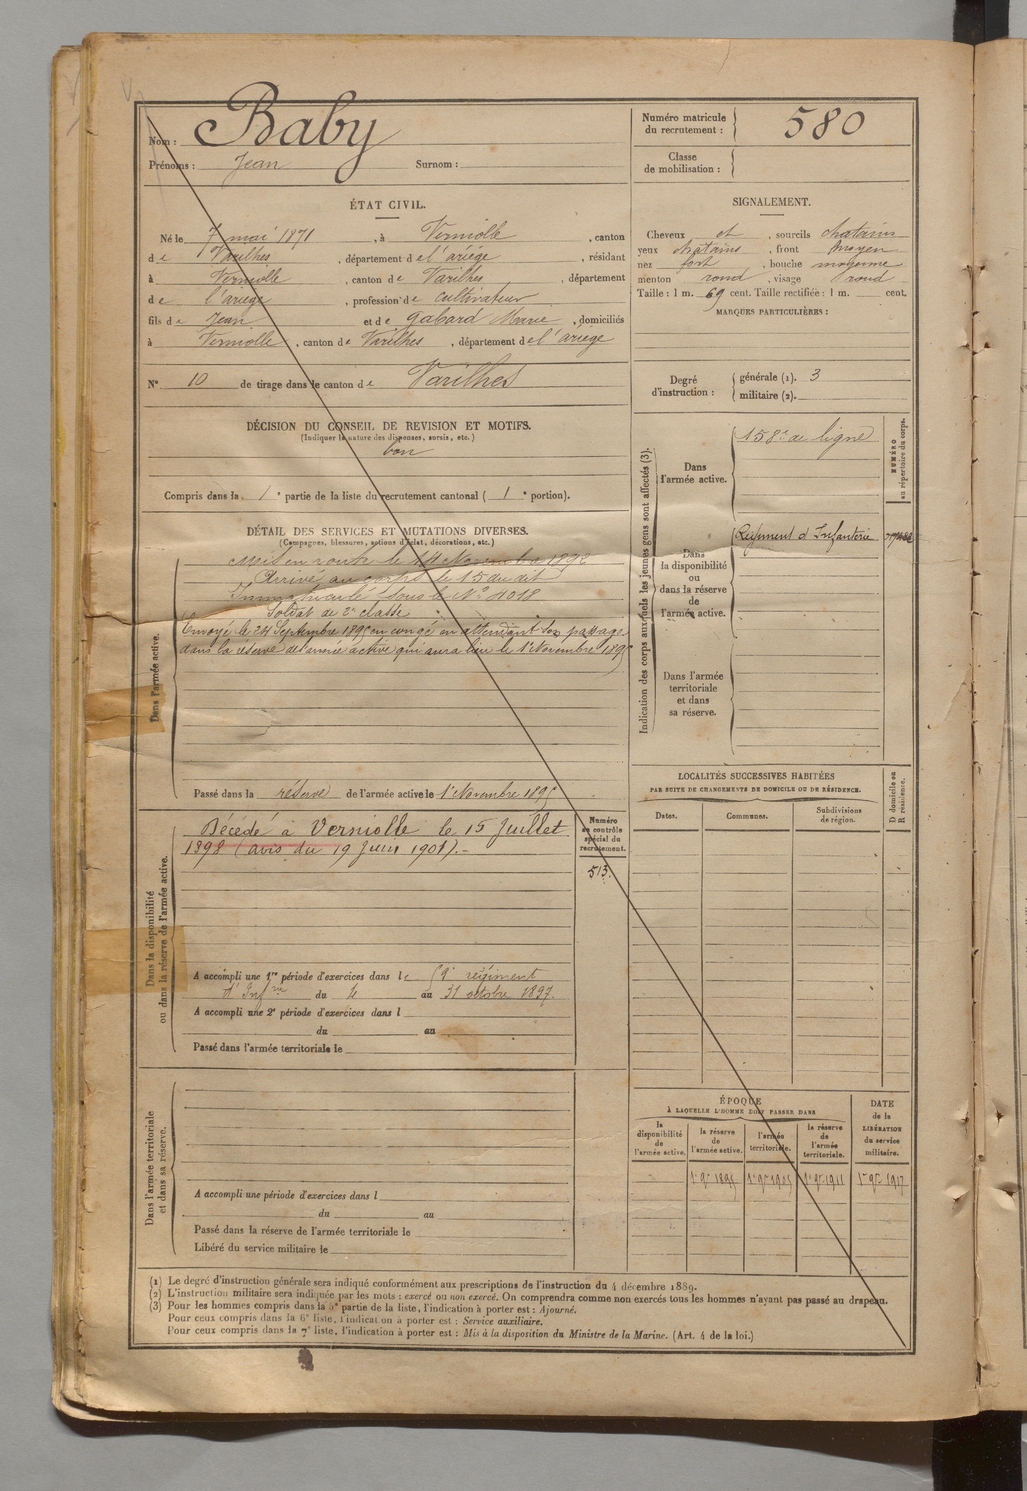 Nom : Baby
Prénoms : Jean Surnom :
Numéro matricule du recrutement : 580
Classe de mobilisation :
ÉTAT CIVIL.
Né le 7 mai 1871, à Verniolle, canton
de Varilhes, département de l'ariège, résidant
à Verniolle, canton de Varilhes, département
de l'ariège, profession de cultivateur
fils de Jean et de Gabard Marie, domiciliés
à Verniolle, canton de Varilhes, département de l'ariège
N° 10 de tirage dans le canton de Varilhes
SIGNALEMENT.
Cheveux et, sourcils chatains
yeux chatains, front moyen
nez fort, bouche moyenne
menton rond, visage rond
Taille : 1 m. 69 cent. Taille rectifiée : 1 m. cent.
MARQUES PARTICULIÈRES :
Degré d'instruction : générale (1). 3
militaire (2).
DÉCISION DU CONSEIL DE REVISION ET MOTIFS.
(Indiquer la nature des dispenses, sursis, etc.)
bon
Compris dans la 1e partie de la liste du recrutement cantonal (1e portion).
DÉTAIL DES SERVICES ET MUTATIONS DIVERSES.
(Campagnes, blessures, actions d'éclat, décorations, etc.)
Dans l'armée active.
Mis en route le 14 Novembre 1892
Arrivé au corps le 15 du dit
Immatriculé sous le N° 4018
Soldat de 2e classe
Envoyé le 24 Septembre 1895 en congé en attendant son passage
dans la réserve de l'armée active qui aura lieu le 1er Novembre 1895
Passé dans la réserve de l'armée active le 1er Novembre 1895
Indication des corps auxquels les jeunes gens sont affectés (3).
NUMÉRO au répertoire du corps.
Dans l'armée active.
158e de ligne
Dans la disponibilité ou dans la réserve de l'armée active.
Régiment d'Infanterie
Dans l'armée territoriale et dans sa réserve.
Dans la disponibilité ou dans la réserve de l'armée active.
Décédé à Verniolle le 15 Juillet
1898 (avis du 19 Juin 1901).-
Numéro au contrôle spécial du recrutement.
513.
A accompli une 1re période d'exercices dans le 59e régiment
d'Infrie du 4 au 31 octobre 1897.
A accompli une 2e période d'exercices dans l
du au
Passé dans l'armée territoriale le
LOCALITÉS SUCCESSIVES HABITÉES
PAR SUITE DE CHANGEMENTS DE DOMICILE OU DE RÉSIDENCE.
D domicile ou R résidence.
Dates. Communes. Subdivisions de région.
Dans l'armée territoriale et dans sa réserve.
A accompli une période d'exercices dans l
du au
Passé dans la réserve de l'armée territoriale le
Libéré du service militaire le
ÉPOQUE
À LAQUELLE L'HOMME DOIT PASSER DANS
la disponibilité de l'armée active.
la réserve de l'armée active.
l'armée territoriale.
la réserve de l'armée territoriale.
DATE de la LIBÉRATION du service militaire.
1er 9bre 1895 1er 9bre 1905 1er 9bre 1911 1er 9bre 1917
(1) Le degré d'instruction générale sera indiqué conformément aux prescriptions de l'instruction du 4 décembre 1889.
(2) L'instruction militaire sera indiquée par les mots : exercé ou non exercé. On comprendra comme non exercés tous les hommes n'ayant pas passé au drapeau.
(3) Pour les hommes compris dans la 5e partie de la liste, l'indication à porter est : Ajourné.
Pour ceux compris dans la 6e liste, l'indication à porter est : Service auxiliaire.
Pour ceux compris dans la 7e liste, l'indication à porter est : Mis à la disposition du Ministre de la Marine. (Art. 4 de la loi.)